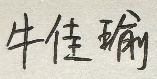 牛佳瑜